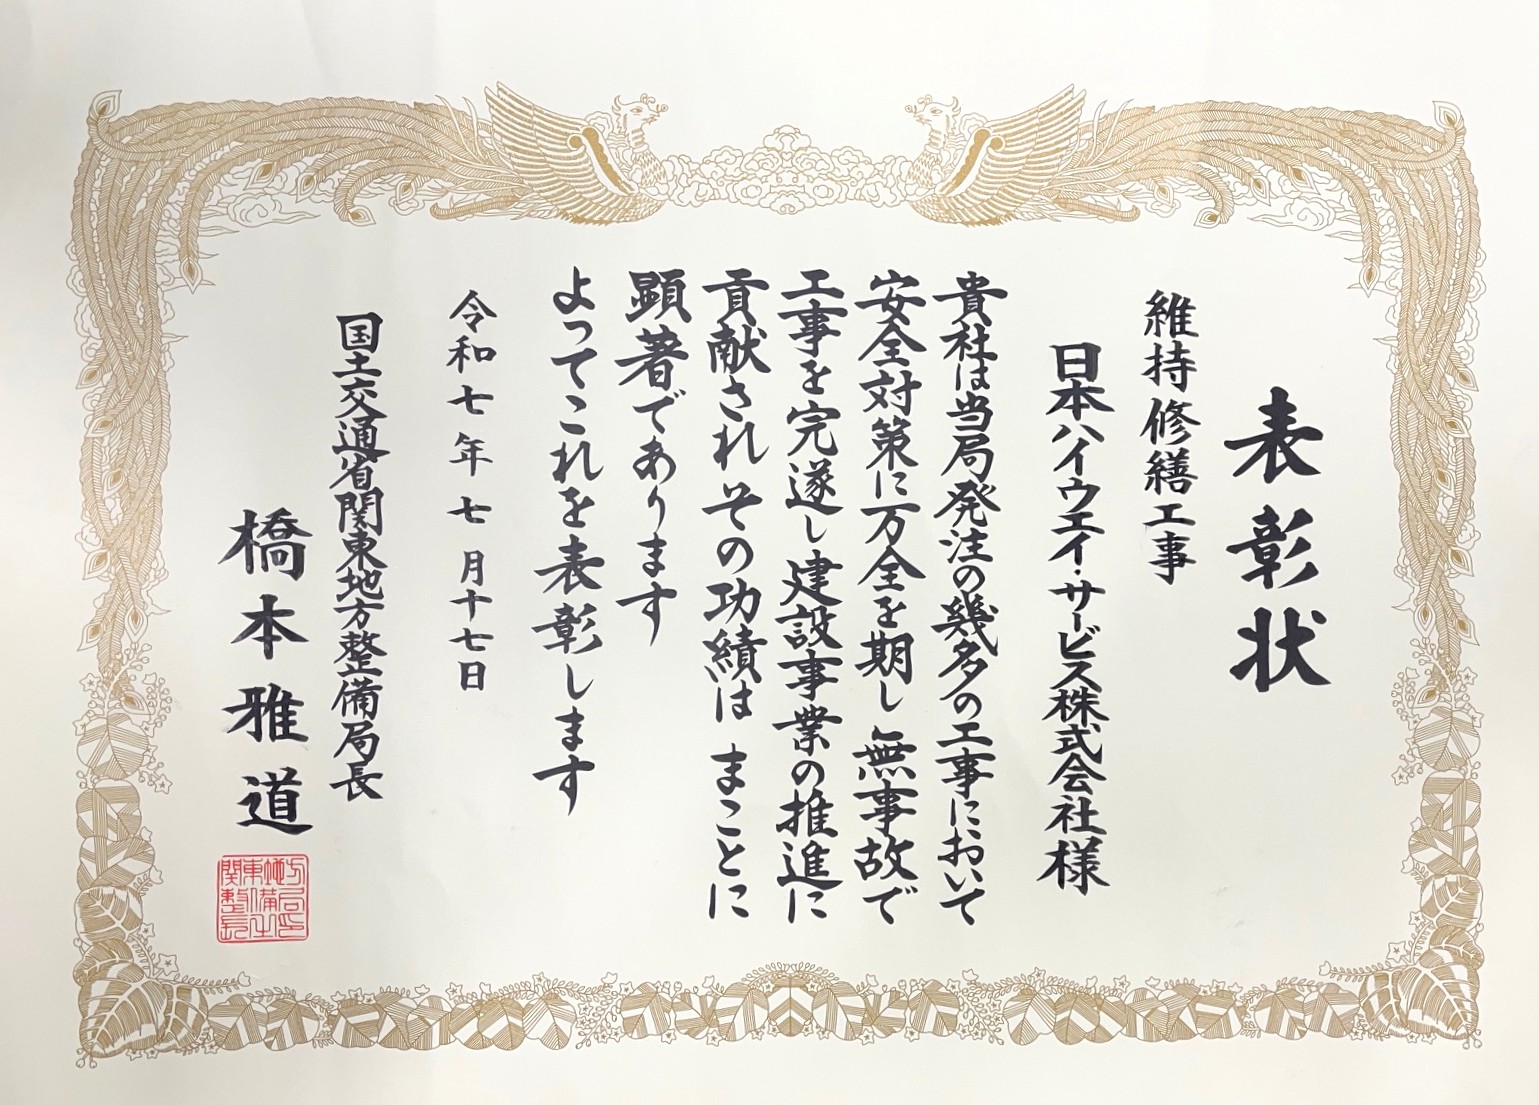 表彰状
維持修繕工事
日本ハイウエイ・サービス株式会社様
貴社は当局発注の幾多の工事において
安全対策に万全を期し 無事故で
工事を完遂し 建設事業の推進に
貢献され その功績は まことに
顕著であります
よってこれを表彰します
令和七年七月十七日
国土交通省関東地方整備局長
橋本雅道